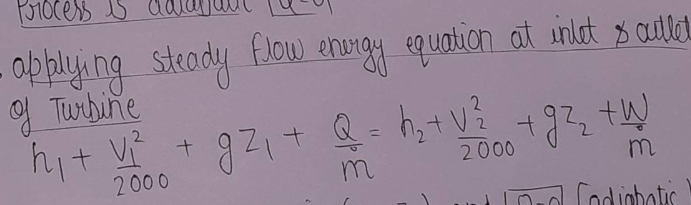 Process is adiabatic Q=0
applying steady flow energy equation at inlet & outlet
of Turbine
h₁ + V₁²/2000 + gZ₁ + Q/ṁ = h₂ + V₂²/2000 + gZ₂ + W/ṁ
and Q=0 [adiabatic